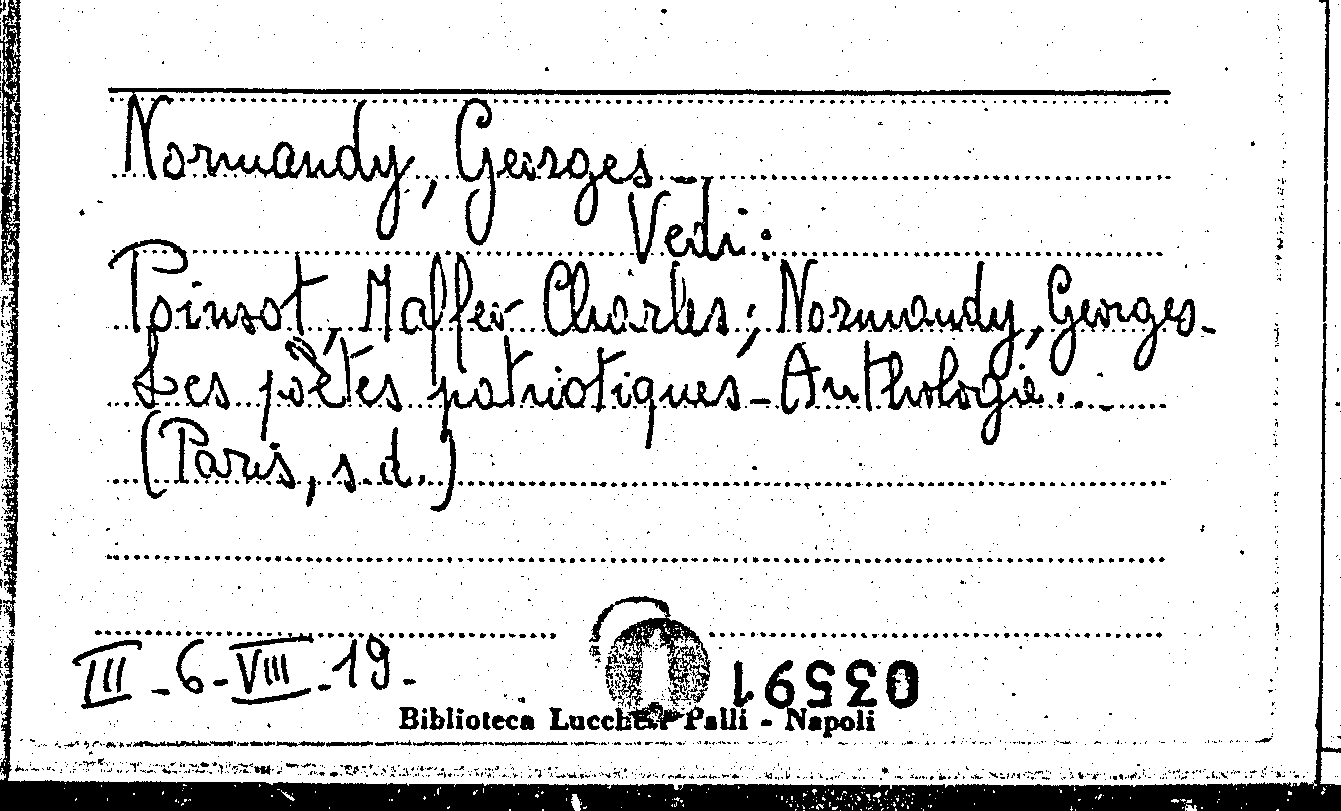 Normandy, Georges -
Vedi:
Poinsot, Maffeo Charles; Normandy, Georges -
Les poètes patriotiques - Anthologie...
(Paris, s.d.)
III - 6 - VIII - 19 -
03591
Biblioteca Lucchesi Palli - Napoli